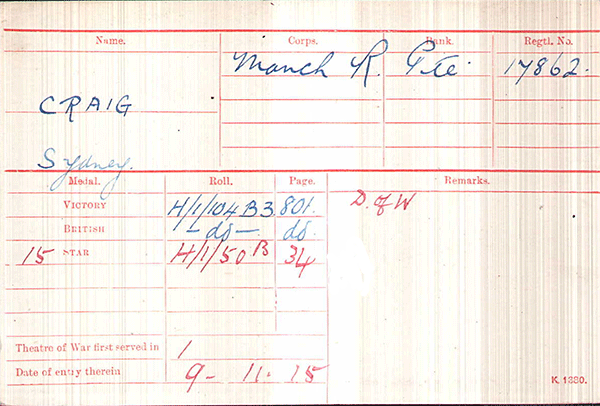 Name. Corps. Rank. Regtl. No.
Manch R. Pte. 17862.
CRAIG
Sydney.
Medal. Roll. Page. Remarks.
VICTORY H/1/104 B3 801. D. of W
BRITISH – do – do.
15 STAR H/1/50 B 34
Theatre of War first served in 1
Date of entry therein 9 - 11 - 15
K. 1380.